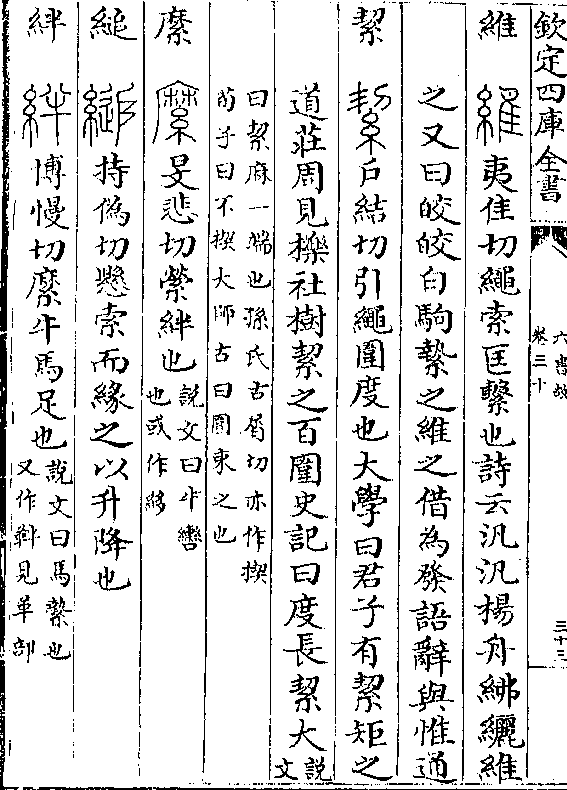 欽定四庫全書
六書故
卷三十
三十三
維 維夷佳切繩索匡繫也詩云汎汎楊舟紼纚維
之又曰皎皎白駒縶之維之借為發語辭與惟通
絜 絜戶結切引繩圍度也大學曰君子有絜矩之
道莊周見櫟社樹絜之百圍史記曰度長絜大說文
曰絜麻一耑也孫氏古屑切亦作㨗
荀子曰不揳大師古曰圍束之也
縻 縻旻悲切縈絆也說文曰牛轡
也或作𦃄
縋 縋持偽切懸索而緣之以升降也
絆 絆博慢切縻牛馬足也說文曰馬縶也
又作靽見革部